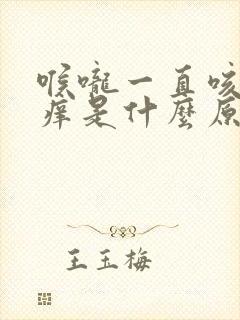 喉嚨一直咳
癢是什麼原
王玉梅